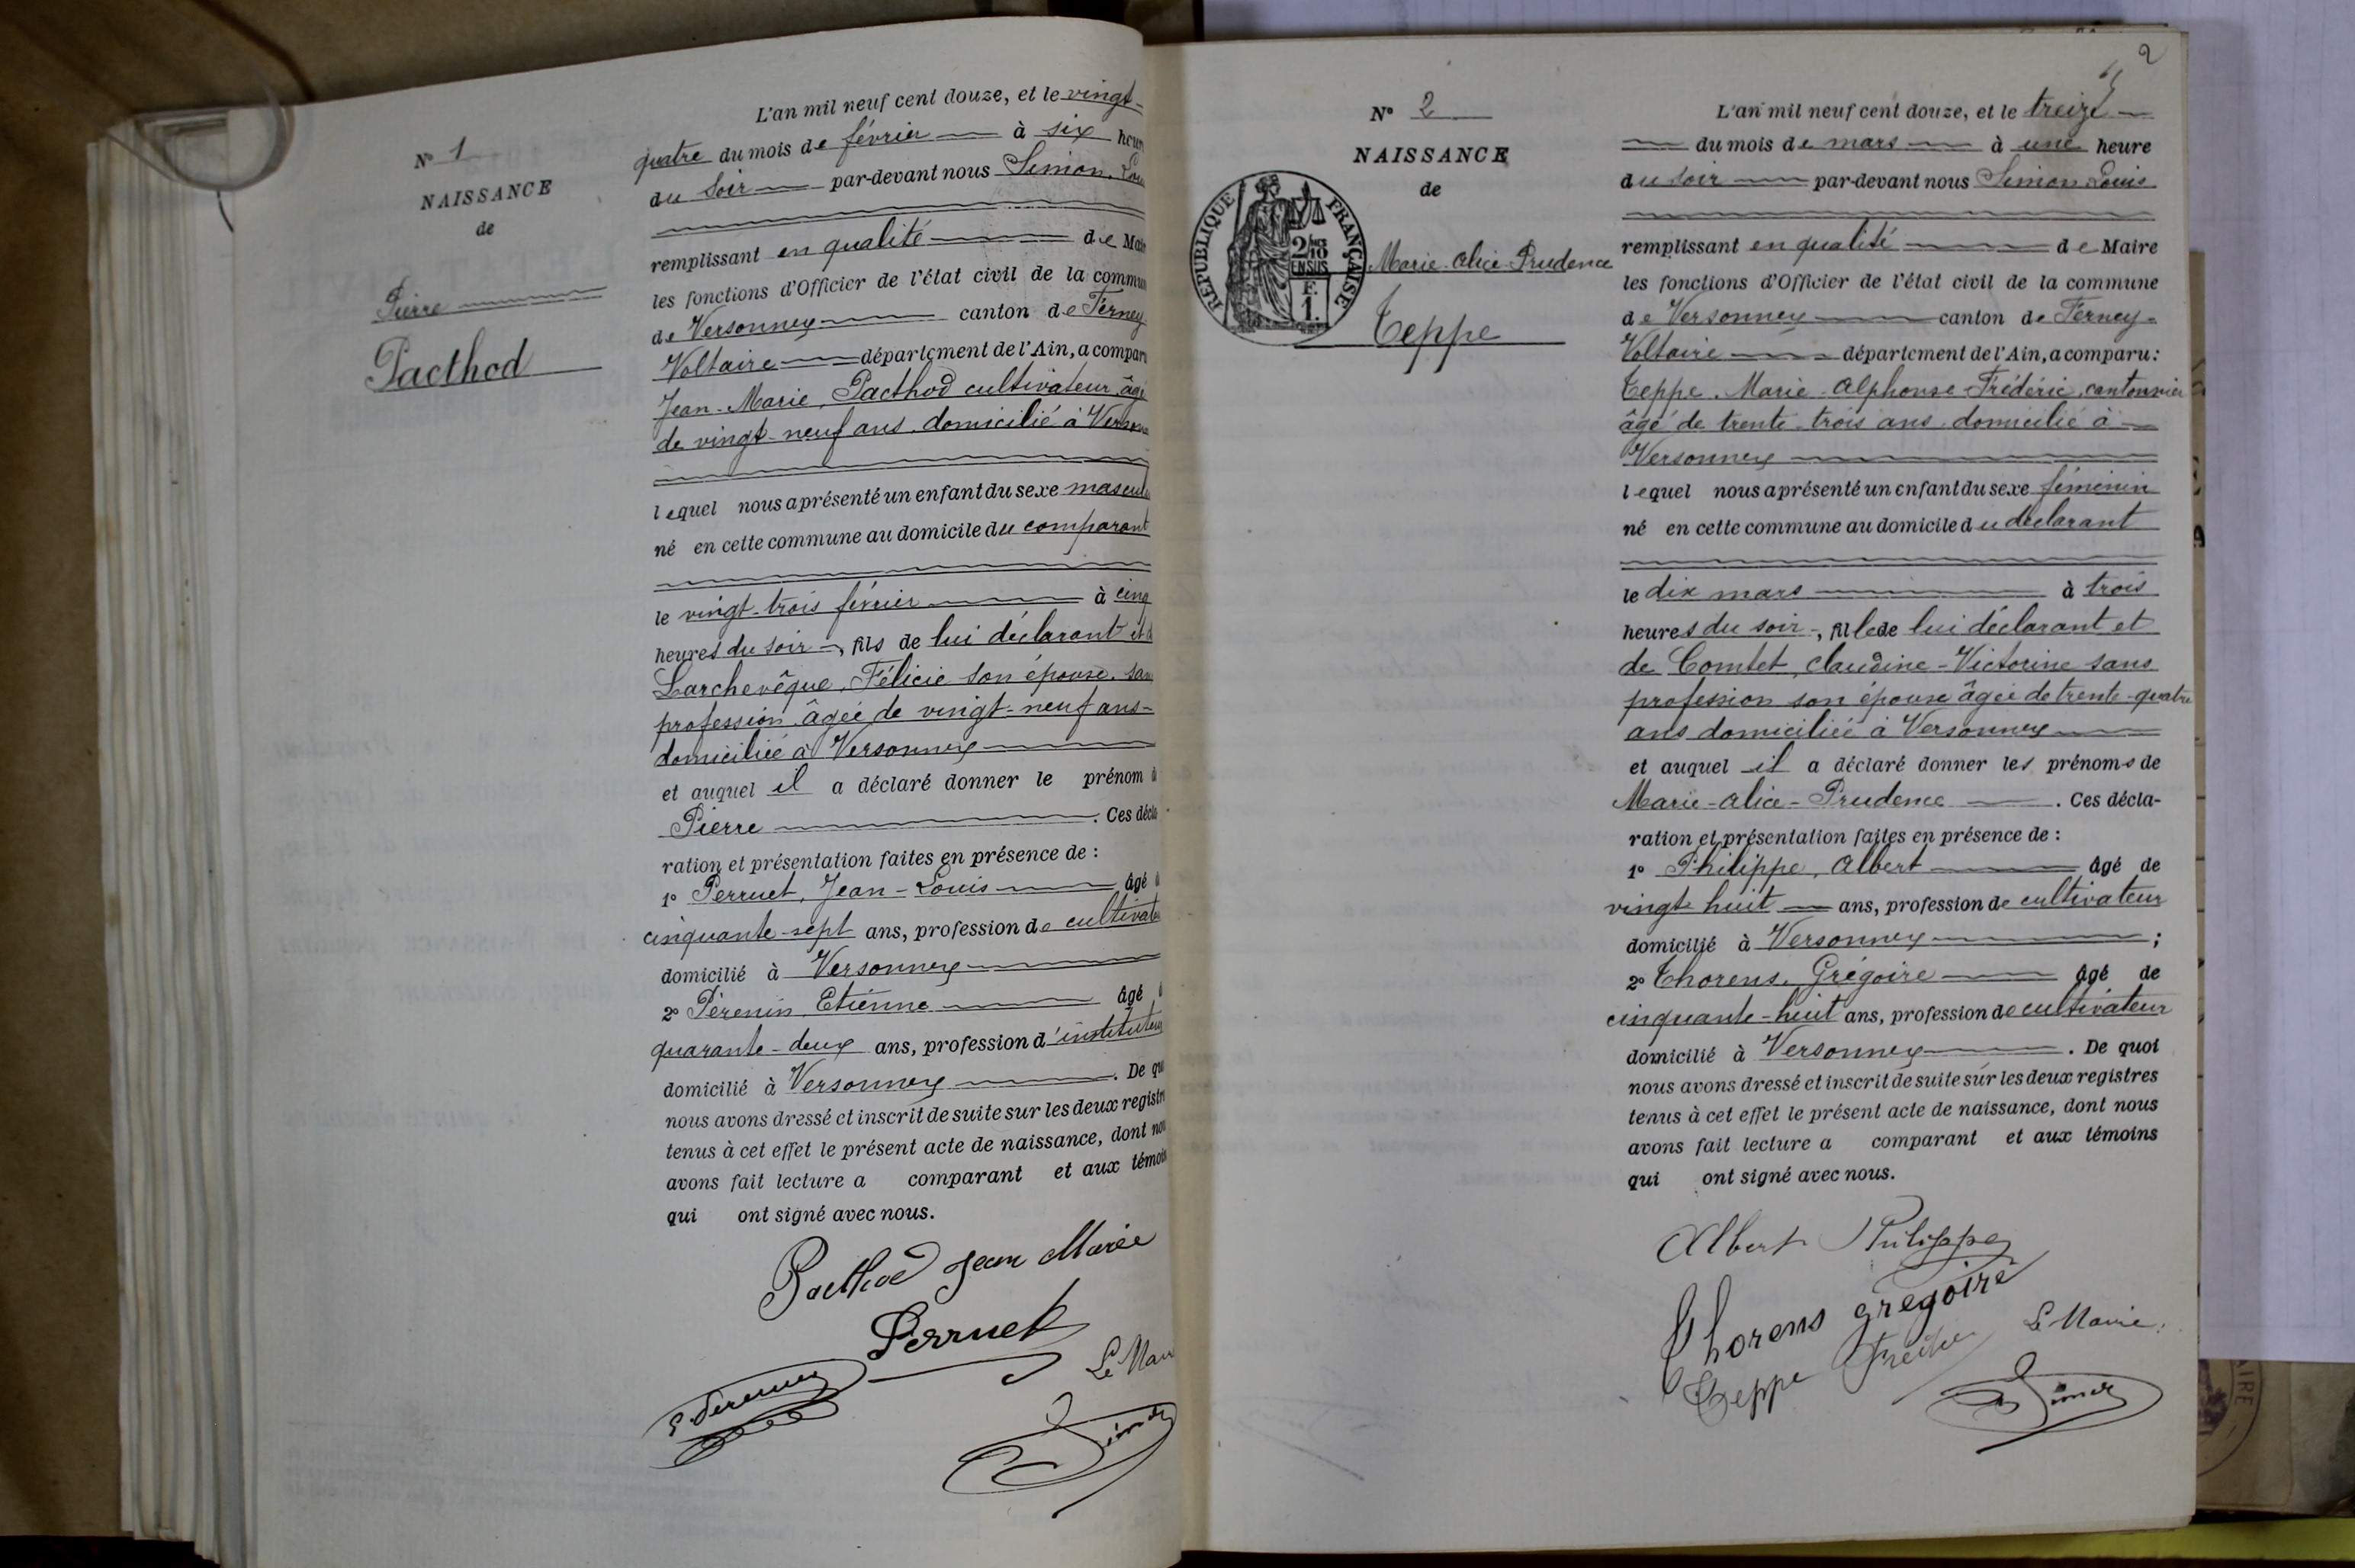 N° 1
NAISSANCE
de
Pierre
Pacthod
L'an mil neuf cent douze, et le vingt-
quatre du mois de février à six heur
du soir par-devant nous Simon, Lou
remplissant en qualité de Mai
les fonctions d'Officier de l'état civil de la commun
de Versonnex canton de Ferney
Voltaire département de l'Ain, a compar
Jean-Marie, Pacthod cultivateur, âgé
de vingt-neuf ans, domicilié à Versonn
lequel nous a présenté un enfant du sexe mascul
né en cette commune au domicile du comparant
le vingt-trois février à cinq
heures du soir, fils de lui déclarant et d
Larchevêque, Félicie son épouse, san
profession âgée de vingt-neuf ans-
domiciliée à Versonnex
et auquel il a déclaré donner le prénom d
Pierre. Ces décla
ration et présentation faites en présence de :
1° Perruet, Jean-Louis âgé d
cinquante-sept ans, profession de cultivate
domicilié à Versonnex
2° Pérenin, Etienne âgé d
quarante-deux ans, profession d'instituteur
domicilié à Versonnex. De qu
nous avons dressé et inscrit de suite sur les deux registr
tenus à cet effet le présent acte de naissance, dont nou
avons fait lecture a comparant et aux témoin
qui ont signé avec nous.
Pacthod Jean Marie
Perruet
Le Mair
Simon
2
N° 2
NAISSANCE
de
RÉPUBLIQUE FRANÇAISE
2/10
EN SUS
F.
1.
Marie-Alice-Prudence
Teppe
L'an mil neuf cent douze, et le treize
du mois de mars à une heure
du soir par-devant nous Simon Louis
remplissant en qualité de Maire
les fonctions d'Officier de l'état civil de la commune
de Versonnex canton de Ferney-
Voltaire département de l'Ain, a comparu :
Teppe, Marie-Alphonse-Frédéric, cantonnier
âgé de trente-trois ans domicilié à
Versonnex
lequel nous a présenté un enfant du sexe féminin
né en cette commune au domicile du déclarant
le dix mars à trois
heures du soir, fille de lui déclarant et
de Comtet, Claudine-Victorine sans
profession son épouse âgée de trente-quatre
ans domiciliée à Versonnex
et auquel il a déclaré donner les prénoms de
Marie-Alice-Prudence. Ces décla-
ration et présentation faites en présence de :
1° Philippe, Albert âgé de
vingt huit ans, profession de cultivateur
domicilié à Versonnex ;
2° Thorens, Grégoire âgé de
cinquante-huit ans, profession de cultivateur
domicilié à Versonnex. De quoi
nous avons dressé et inscrit de suite sur les deux registres
tenus à cet effet le présent acte de naissance, dont nous
avons fait lecture a comparant et aux témoins
qui ont signé avec nous.
Albert Philippe
Thorens grégoire
Le Maire,
Teppe
Simon
AIRE